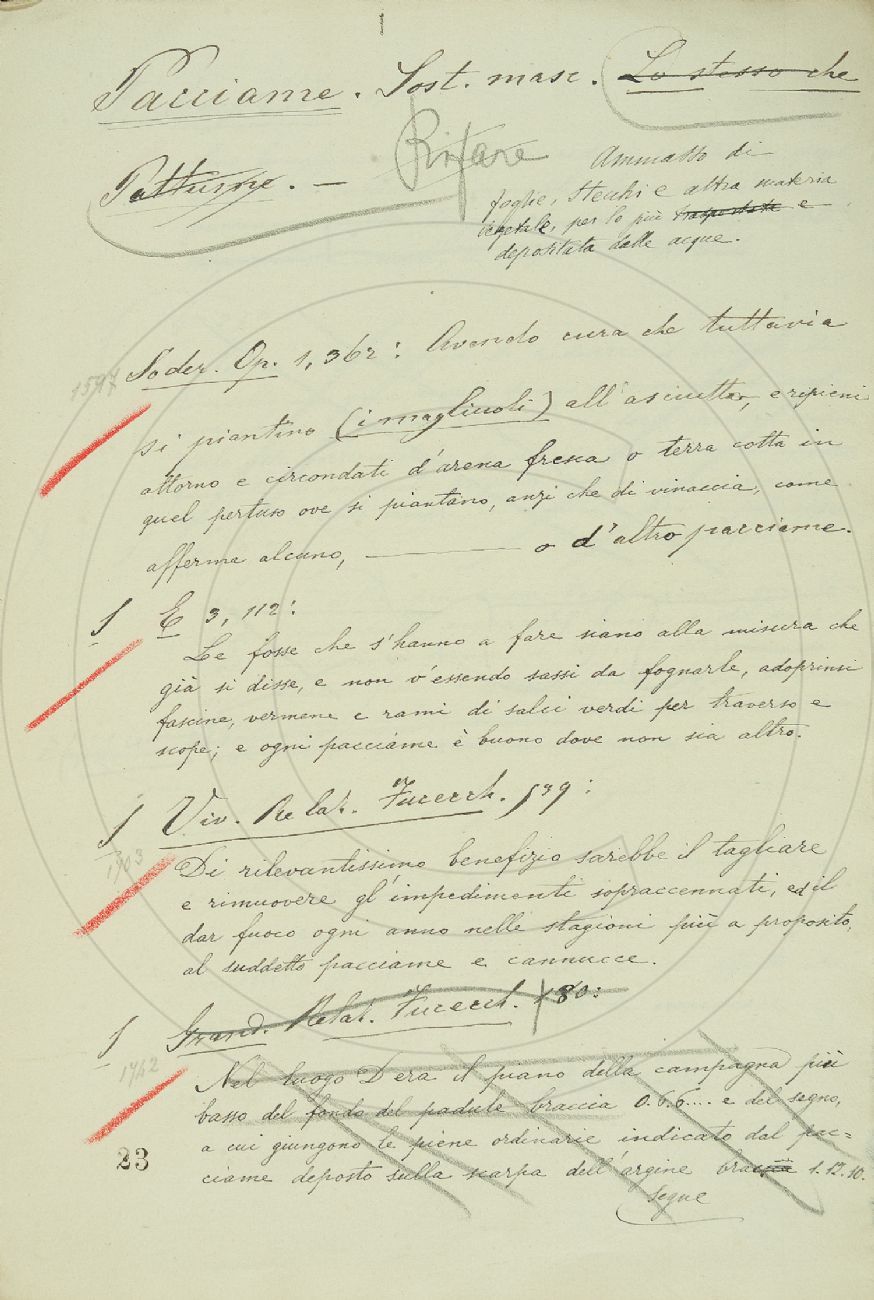 Pacciame. Sost. masc. Lo stesso che
Pattume. — Rifare
Ammasso di
foglie, stecchi e altra materia
vegetale, per lo più trasportata e
depositata dalle acque.
1597 Soder. Op. 1, 362: Avendo cura che tuttavia
si piantino (i magliuoli) all'asciutto, e ripieni
attorno e circondati d'arena fresca o terra cotta in
quel pertuso ove si piantano, anzi che di vinaccia, come
afferma alcuno, ——— o d'altro pacciame.
S E 3, 112:
Le fosse che s'hanno a fare siano alla misura che
già si disse, e non v'essendo sassi da fognarle, adoprinsi
fascine, vermene e rami di salci verdi per traverso e
scope; e ogni pacciame è buono dove non sia altro.
S Viv. Relaz. Fucecch. 539:
1703 Di rilevantissimo benefizio sarebbe il tagliare
e rimuovere gl'impedimenti sopraccennati, ed il
dar fuoco ogni anno nelle stagioni più a proposito,
al suddetto pacciame e cannucce.
S Grand. Relaz. Fucecch. 180:
1742 Nel luogo D era il piano della campagna più
basso del fondo del padule braccia 0.6.6.... e del segno,
a cui giungono le piene ordinarie indicato dal pac=
ciame deposto sulla scarpa dell'argine braccia 1.12.10.
23
Segue